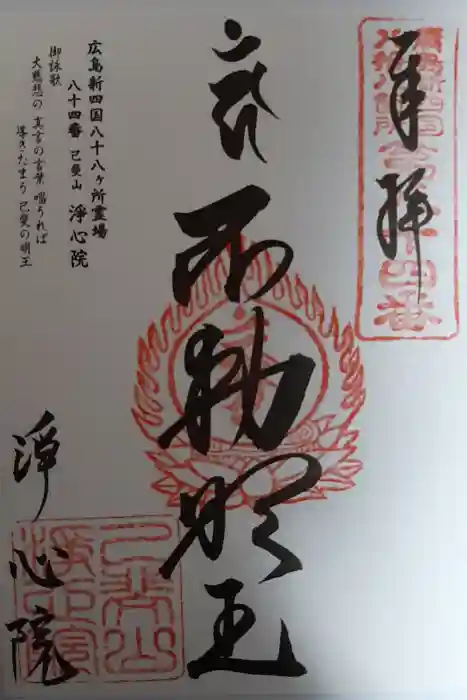 奉拝
廣島新四国
八拾八箇所
第八十四番
不動明王
広島新四国八十八ヶ所霊場
八十四番 己斐山 淨心院
御詠歌
大慈悲の 真言の言葉 唱うれば
導きたまう 己斐の明王
淨心院